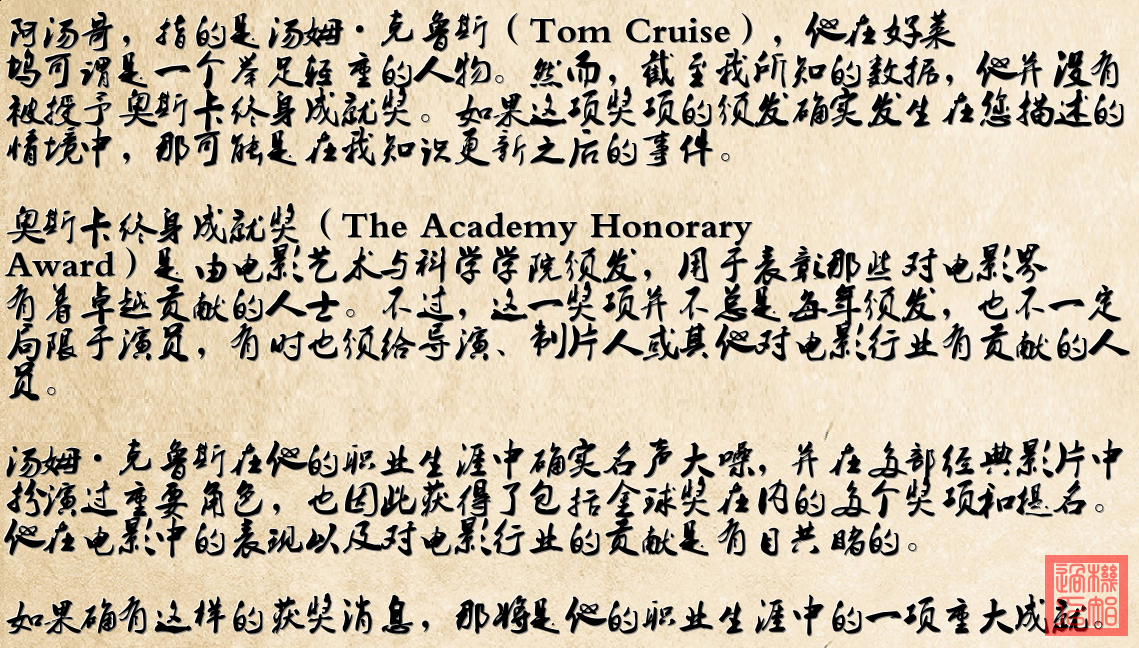 阿汤哥，指的是汤姆·克鲁斯（Tom Cruise），他在好莱
坞可谓是一个举足轻重的人物。然而，截至我所知的数据，他并没有
被授予奥斯卡终身成就奖。如果这项奖项的颁发确实发生在您描述的
情境中，那可能是在我知识更新之后的事件。
奥斯卡终身成就奖（The Academy Honorary
Award）是由电影艺术与科学学院颁发，用于表彰那些对电影界
有着卓越贡献的人士。不过，这一奖项并不总是每年颁发，也不一定
局限于演员，有时也颁给导演、制片人或其他对电影行业有贡献的人
员。
汤姆·克鲁斯在他的职业生涯中确实名声大噪，并在多部经典影片中
扮演过重要角色，也因此获得了包括金球奖在内的多个奖项和提名。
他在电影中的表现以及对电影行业的贡献是有目共睹的。
如果确有这样的获奖消息，那将是他的职业生涯中的一项重大成就。